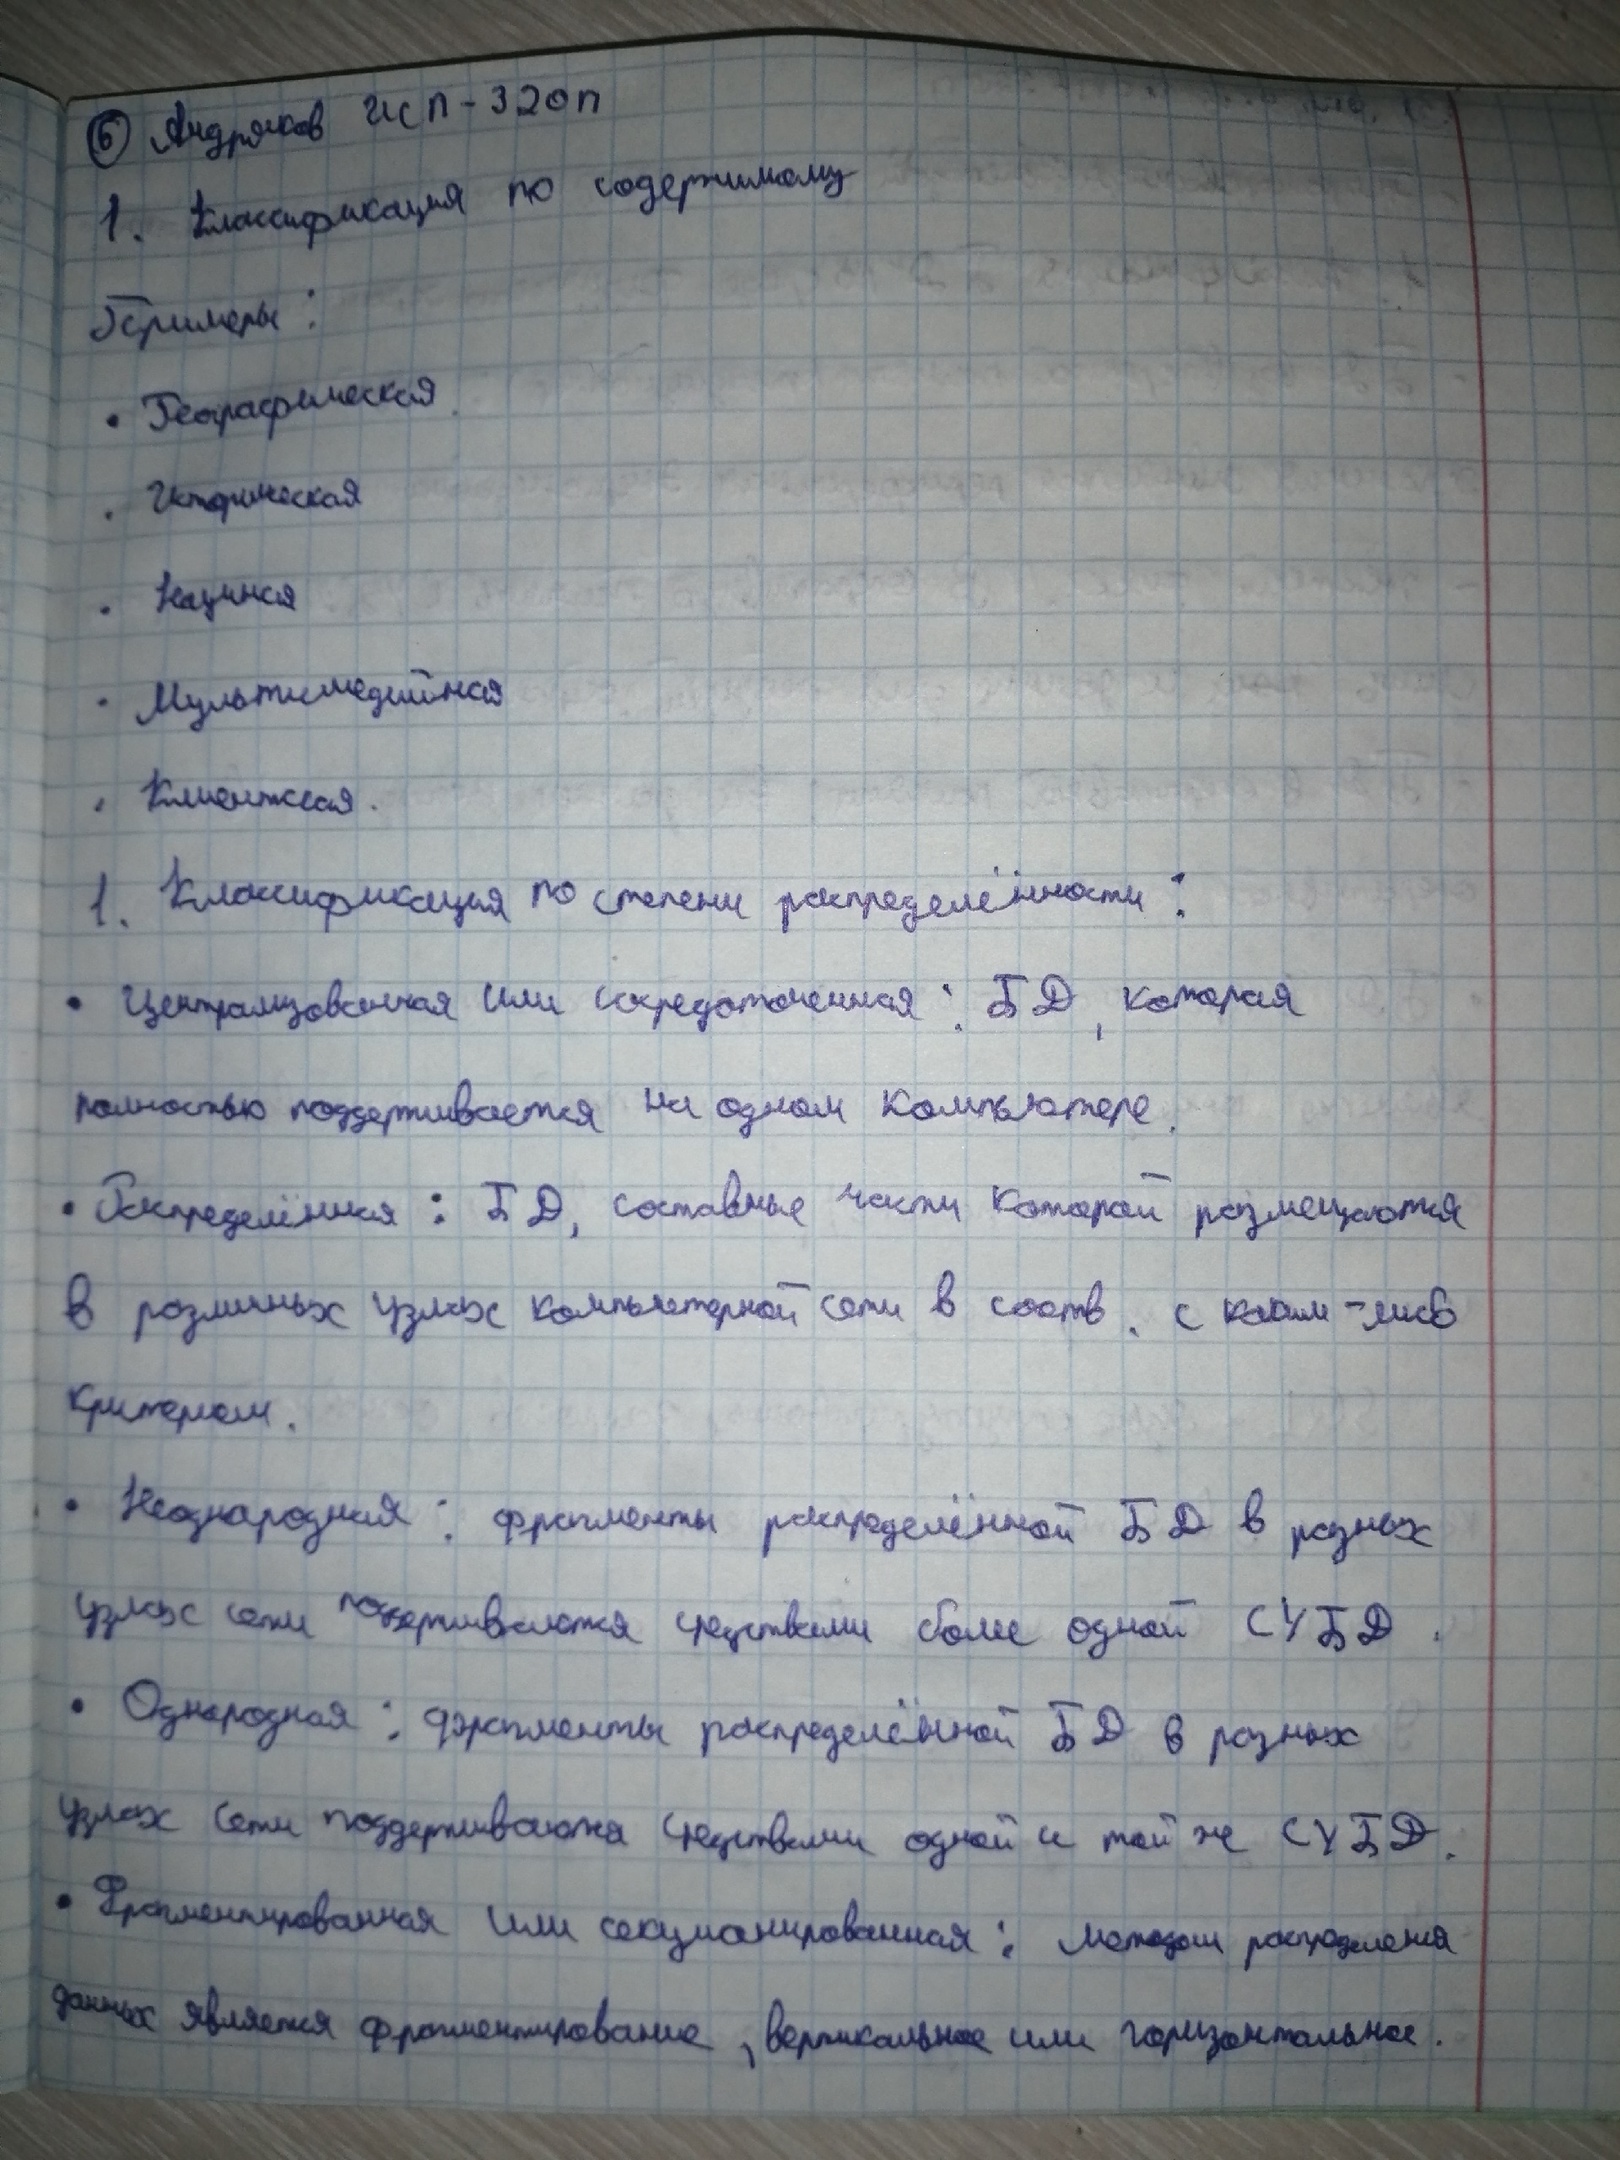 ⑥ Андряков ИСП-320п
1. Классификация по содержимому
Примеры:
• Географическая.
• Историческая
• Научная
• Мультимедийная
• Клиентская.
1. Классификация по степени распределённости:
• Централизованная или сосредоточенная: БД, которая
полностью поддерживается на одном компьютере.
• Распределённая: БД, составные части которой размещаются
в различных узлах компьютерной сети в соотв. с каким-либо
критерием.
• Неоднородная: фрагменты распределённой БД в разных
узлах сети поддерживаются средствами более одной СУБД.
• Однородная: фрагменты распределённой БД в разных
узлах сети поддерживаются средствами одной и той же СУБД.
• Фрагментированная или секционированная: методом распределения
данных является фрагментирование, вертикальное или горизонтальное.